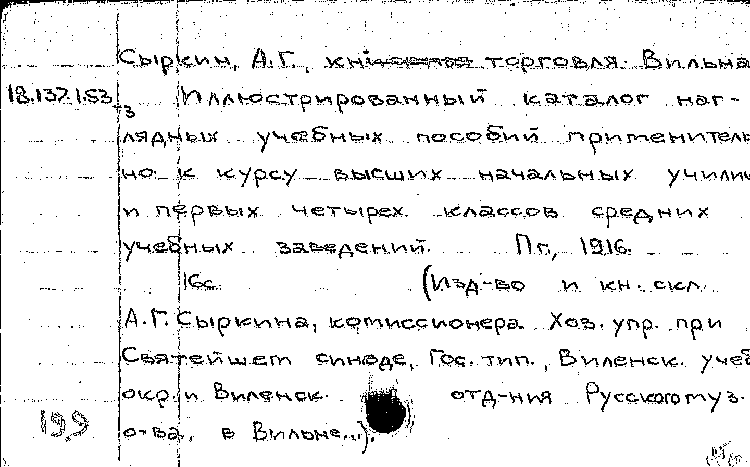 Сыркин, А.Г., кн. торговля. Вильна
18.137.1.53
-3
Иллюстрированный каталог наг-
лядных учебных пособий применитель
но к курсу высших начальных учили
и первых четырех классов средних
учебных заведений. Пг., 1916.
16с. (Изд-во и кн. скл.
А.Г. Сыркина, комиссионера Хоз. упр. при
Святейшем синоде, Гос. тип., Виленск. учеб
окр. и Виленск. отд-ния Русского муз.
19.9
о-ва, в Вильне...).